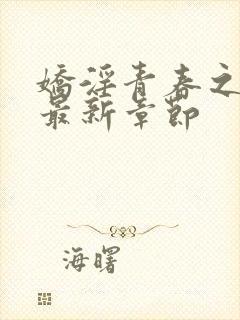 娇淫青春之
最新章節
海曙